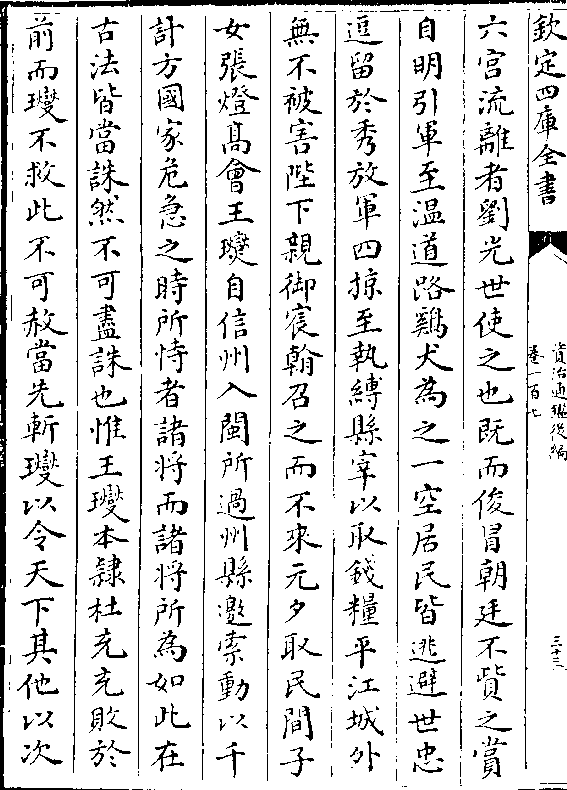 欽定四庫全書
資治通鑑後編
卷一百七
三十三
六宫流離者劉光世使之也既而俊冒朝廷不貲之賞
自明引軍至温道路鷄犬為之一空居民皆逃避世忠
逗留於秀放軍四掠至執縛縣宰以取錢糧平江城外
無不被害陛下親御宸翰召之而不來元夕取民間子
女張燈髙會王𤫉自信州入閩所過州縣邀索動以千
計方國家危急之時所恃者諸将而諸将所為如此在
古法皆當誅然不可盡誅也惟王𤫉本隸杜充充敗於
前而𤫉不救此不可赦當先斬𤫉以令天下其他以次